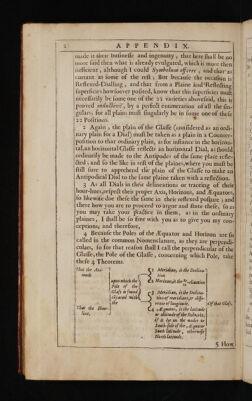 2 APPENDIX.
made it there businesse and ingenuity, that here shall be no
more said then what is already evulgated, which is more then
sufficient, although I could Symbolum afferre, and that as
currant as some of the rest; But because the occasion is
Reflected-Dialling, and that from a Plaine and Reflecting
superficies howsoever posited, know that this superficies must
necessarily be some one of the 22 varieties abovesaid, this is
proved inductivè, by a perfect enumeration of all the sin-
gulars: for all plains must singularly be in some one of these
22 Positions.
2 Again, the plain of the Glasse (considered as an ordi-
nary plain for a Dial) must be taken as a plain in a Counter-
position to that ordinary plain, as for instance in the horizon-
tal, an horizontal Glasse reflects an horizontal Dial, as should
ordinarily be made to the Antipodes of the same place refle-
cted; and so the like in rest of the plaines, where you must be
still sure to apprehend the plain of the Glasse to make an
Antipodical Dial to the same plaine taken with a reflection.
3 As all Dials in their delineations or tracing of their
hour-lines, respect their proper Axis, Horizons, and Æquators,
so likewise doe these the same in their reflected posture; and
there how you are to proceed to large and these, so as
you may take your in them, as in the ordinary
plaines, I shall be so free with you as to give you my con-
ceptions, and therefore,
4 Because the Poles of the Æquator and Horizon are so
called in the common Nomenclature, as they are perpendi-
culars, so for that reason shall I call the perpendicular of the
Glasse, the Pole of the Glasse, concerning which Pole, take
these 4 Theorems.
That the Azi-
muth
That the Hour-
line,
upon which the
Pole of the
Glasse is found
is with
the
1 Meridian, is the Declina-
tion
2 Horizon, is the
3 Meridian, is the Declina-
tion of meridians, or diffe-
rence of longitude.
4 Æquator, is the latitude
or altitude of the Substyle,
South side of the Æquator
South latitude, otherwise
North latitude.
of that Glass.
5 How